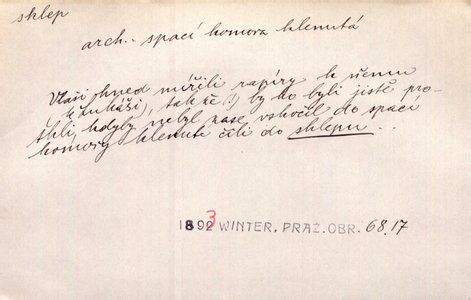 sklep
arch.. spací komora klenutá
Vlaši hned mířili rapíry k němu
(Lukáši), takže (!) by ho byli jistě pro-
tkli, kdyby nebyl zase vskočil do spací
komory klenuté čili do sklepu...
1893 WINTER, PRAŽ. OBR. 68.17